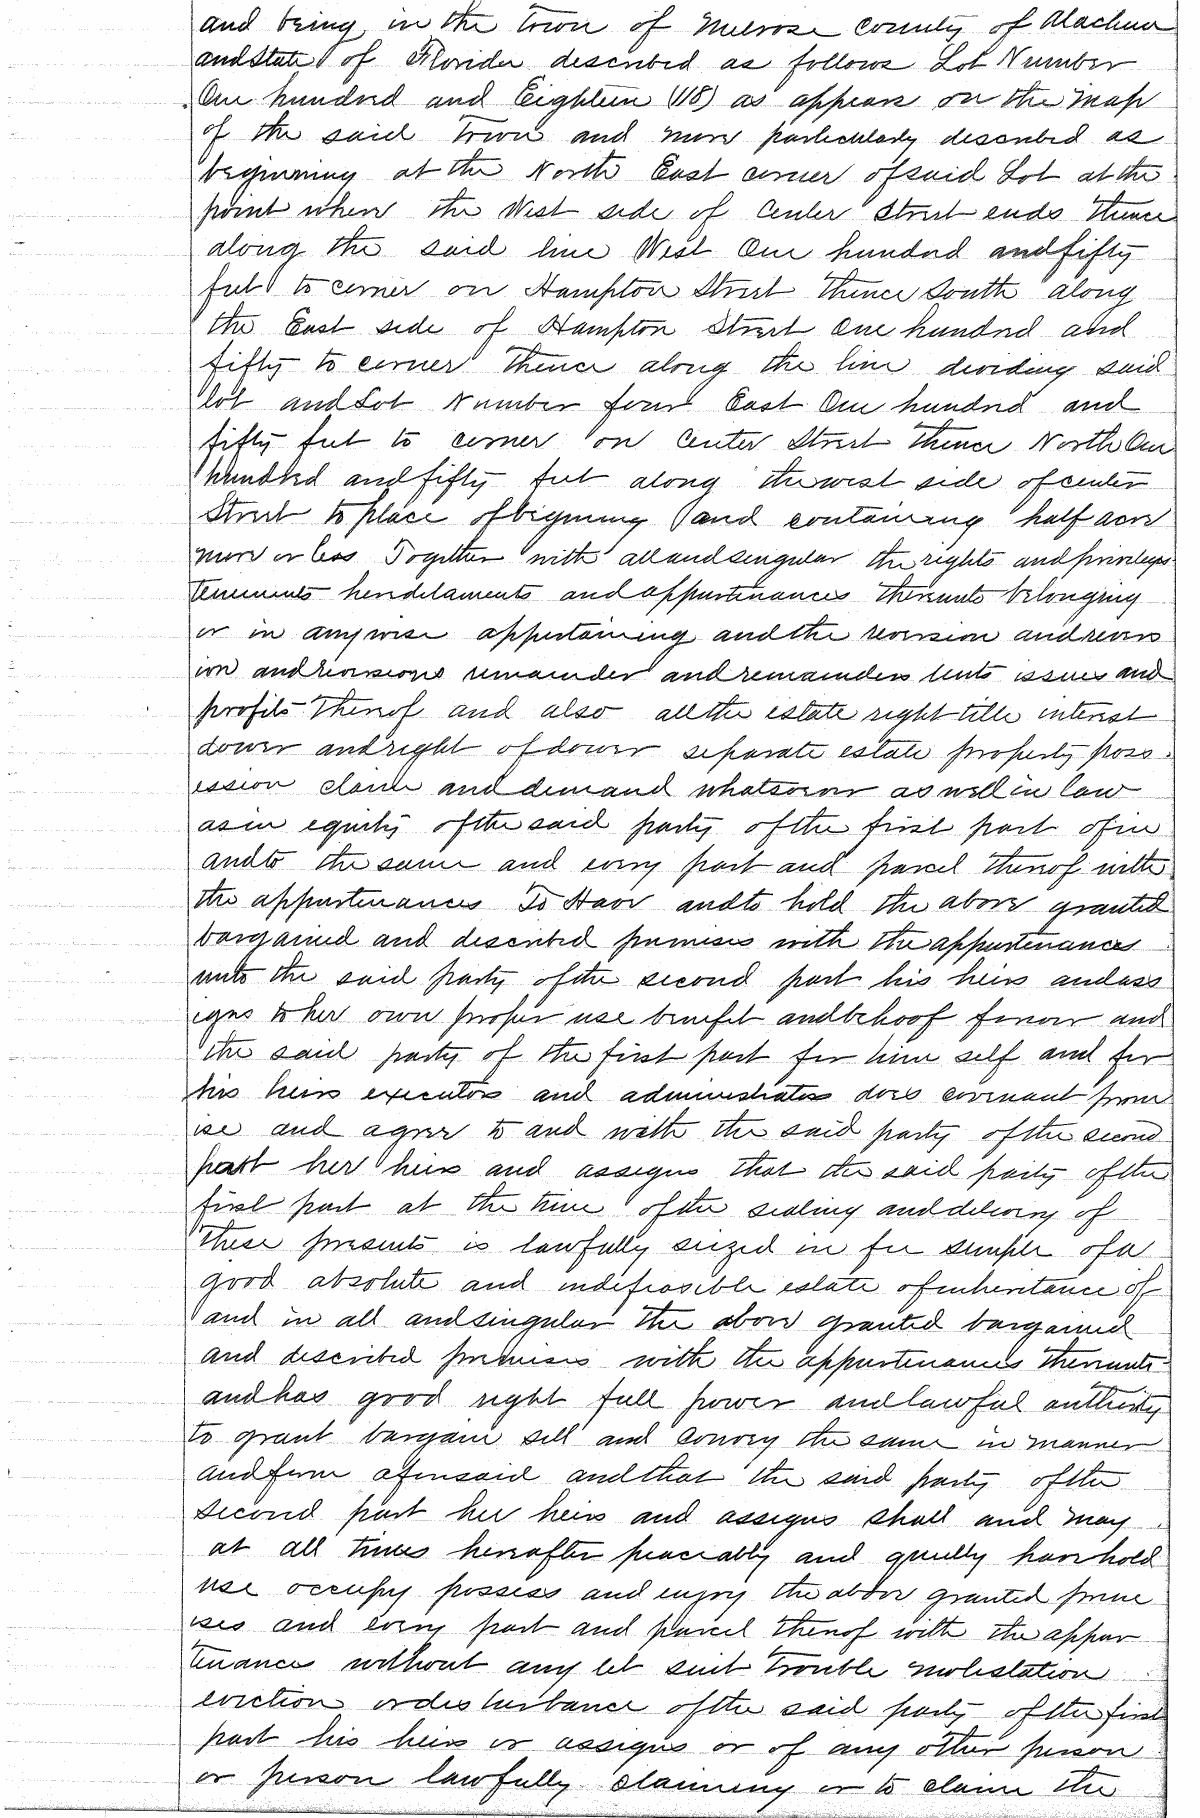 and being in the Town of Melrose County of Alachua
and State of Florida described as follows Lot Number
One hundred and Eighteen (118) as appears on the map
of the said Town and more particularly described as
beginning at the North East corner of said Lot at the
point where the West side of Center Street ends thence
along the said line West One hundred and fifty
feet to corner on Hampton Street thence South along
the East side of Hampton Street One hundred and
fifty to corner thence along the line dividing said
lot and Lot Number four East One hundred and
fifty feet to corner on Center Street thence North One
hundred and fifty feet along the west side of center
Street to place of beginning and containing half acre
more or less Together with all and singular the rights and privileges
tenements heredetaments and appurtenances thereunto belonging
or in anywise appertaining and the reversion and revers
ion and reversions remainder and remainders rents issues and
profits thereof and also all the estate right title interest
dower and right of dower separate estate property poss
ession claim and demand whatsoever as well in law
as in equity of the said party of the first part of in
and to the same and every part and parcel thereof with
the appurtenances To Have and to hold the above granted
bargained and described premises with the appurtenances
unto the said party of the second part his heirs and ass
igns to her own proper use benefit and behoof forever and
the said party of the first part for him self and for
his heirs executors and administrators does covenant prom
ise and agree to and with the said party of the second
part her heirs and assigns that the said party of the
first part at the time of the sealing and delivery of
these presents is lawfully seized in fee simple of a
good absolute and indefeasible estate of inheritance of
and in all and singular the above granted bargained
and described premises with the appurtenances thereunto
and has good right full power and lawful authority
to grant bargain sell and convey the same in manner
and form aforesaid and that the said party of the
second part her heirs and assigns shall and may
at all times hereafter peaceably and quietly have hold
use occupy possess and enjoy the above granted prem
ises and every part and parcel thereof with the appur
tenances without any let suit trouble molestation
eviction or disturbance of the said party of the first
part his heirs or assigns or of any other person
or person lawfully claiming or to claim the